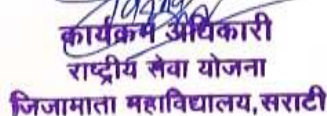 कार्यक्रम अधिकारी
राष्ट्रीय सेवा योजना
जिजामाता महाविद्यालय, सराटी